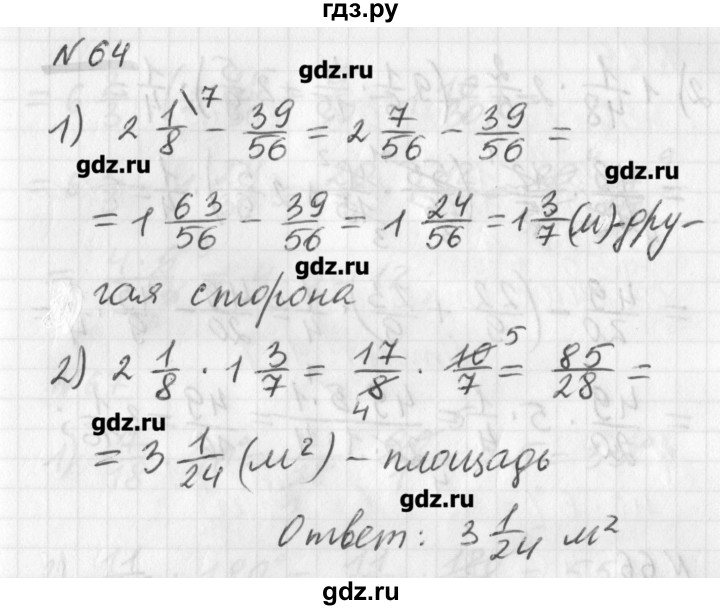 гдз.ру
№ 64
gdz.ru
1) 2 1/8 \7 - 39/56 = 2 7/56 - 39/56 =
gdz.ru
gdz.ru
= 1 63/56 - 39/56 = 1 24/56 = 1 3/7 (м) - дру-
gdz.ru
гая сторона
2) 2 1/8 · 1 3/7 = 17/8 4 · 10 5/7 = 85/28 =
gdz.ru
= 3 1/24 (м²) - площадь
gdz.ru
Ответ: 3 1/24 м²
gdz.ru